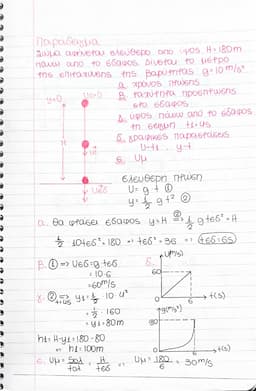 Παράδειγμα
Σώμα αφήνεται ελεύθερο από ύψος H=180m
πάνω από το έδαφος. Δίνεται το μέτρο
της επιτάχυνσης της βαρύτητας g=10m/s²
α. χρόνος πτώσης
β. ταχύτητα πρόσπτωσης
στο έδαφος
γ. ύψος πάνω από το έδαφος
τη στιγμή t₁=4s
δ. γραφικές παραστάσεις
υ-t, y-t
ε. υμ
y=0
υ₀=0
H
h₁
υεδ
ελεύθερη πτώση
υ=g t ①
y=½ g t² ②
α. Θα φτάσει έδαφος y=H ②⇒ ½ g tεδ²=H
½ 10tεδ²=180 ⇒ tεδ²=36 ⇒ tεδ=6s
β. ① ⇒ υεδ=g tεδ
=10·6
=60m/s
δ.
υ(m/s)
60
6
t(s)
γ. ②⇒ y₁=½·10·4²
t₁=4s
=½·160
y₁=80m
h₁=H-y₁=180-80
h₁=100m
y(m)
180
6
t(s)
ε. υμ=Sολ/tολ=H/tεδ ⇒ υμ=180/6=30m/s